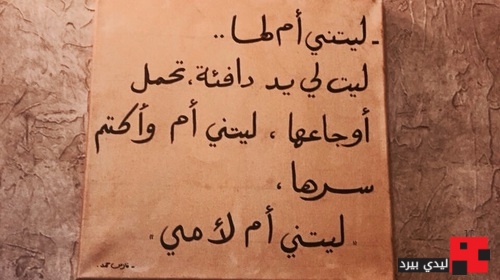 - ليتني أم لها ..
ليت لي يد دافئة، تحمل
أوجاعها، ليتني أم وأكتم
سرها،
" ليتني أم لأمي "
ليدي بيرد